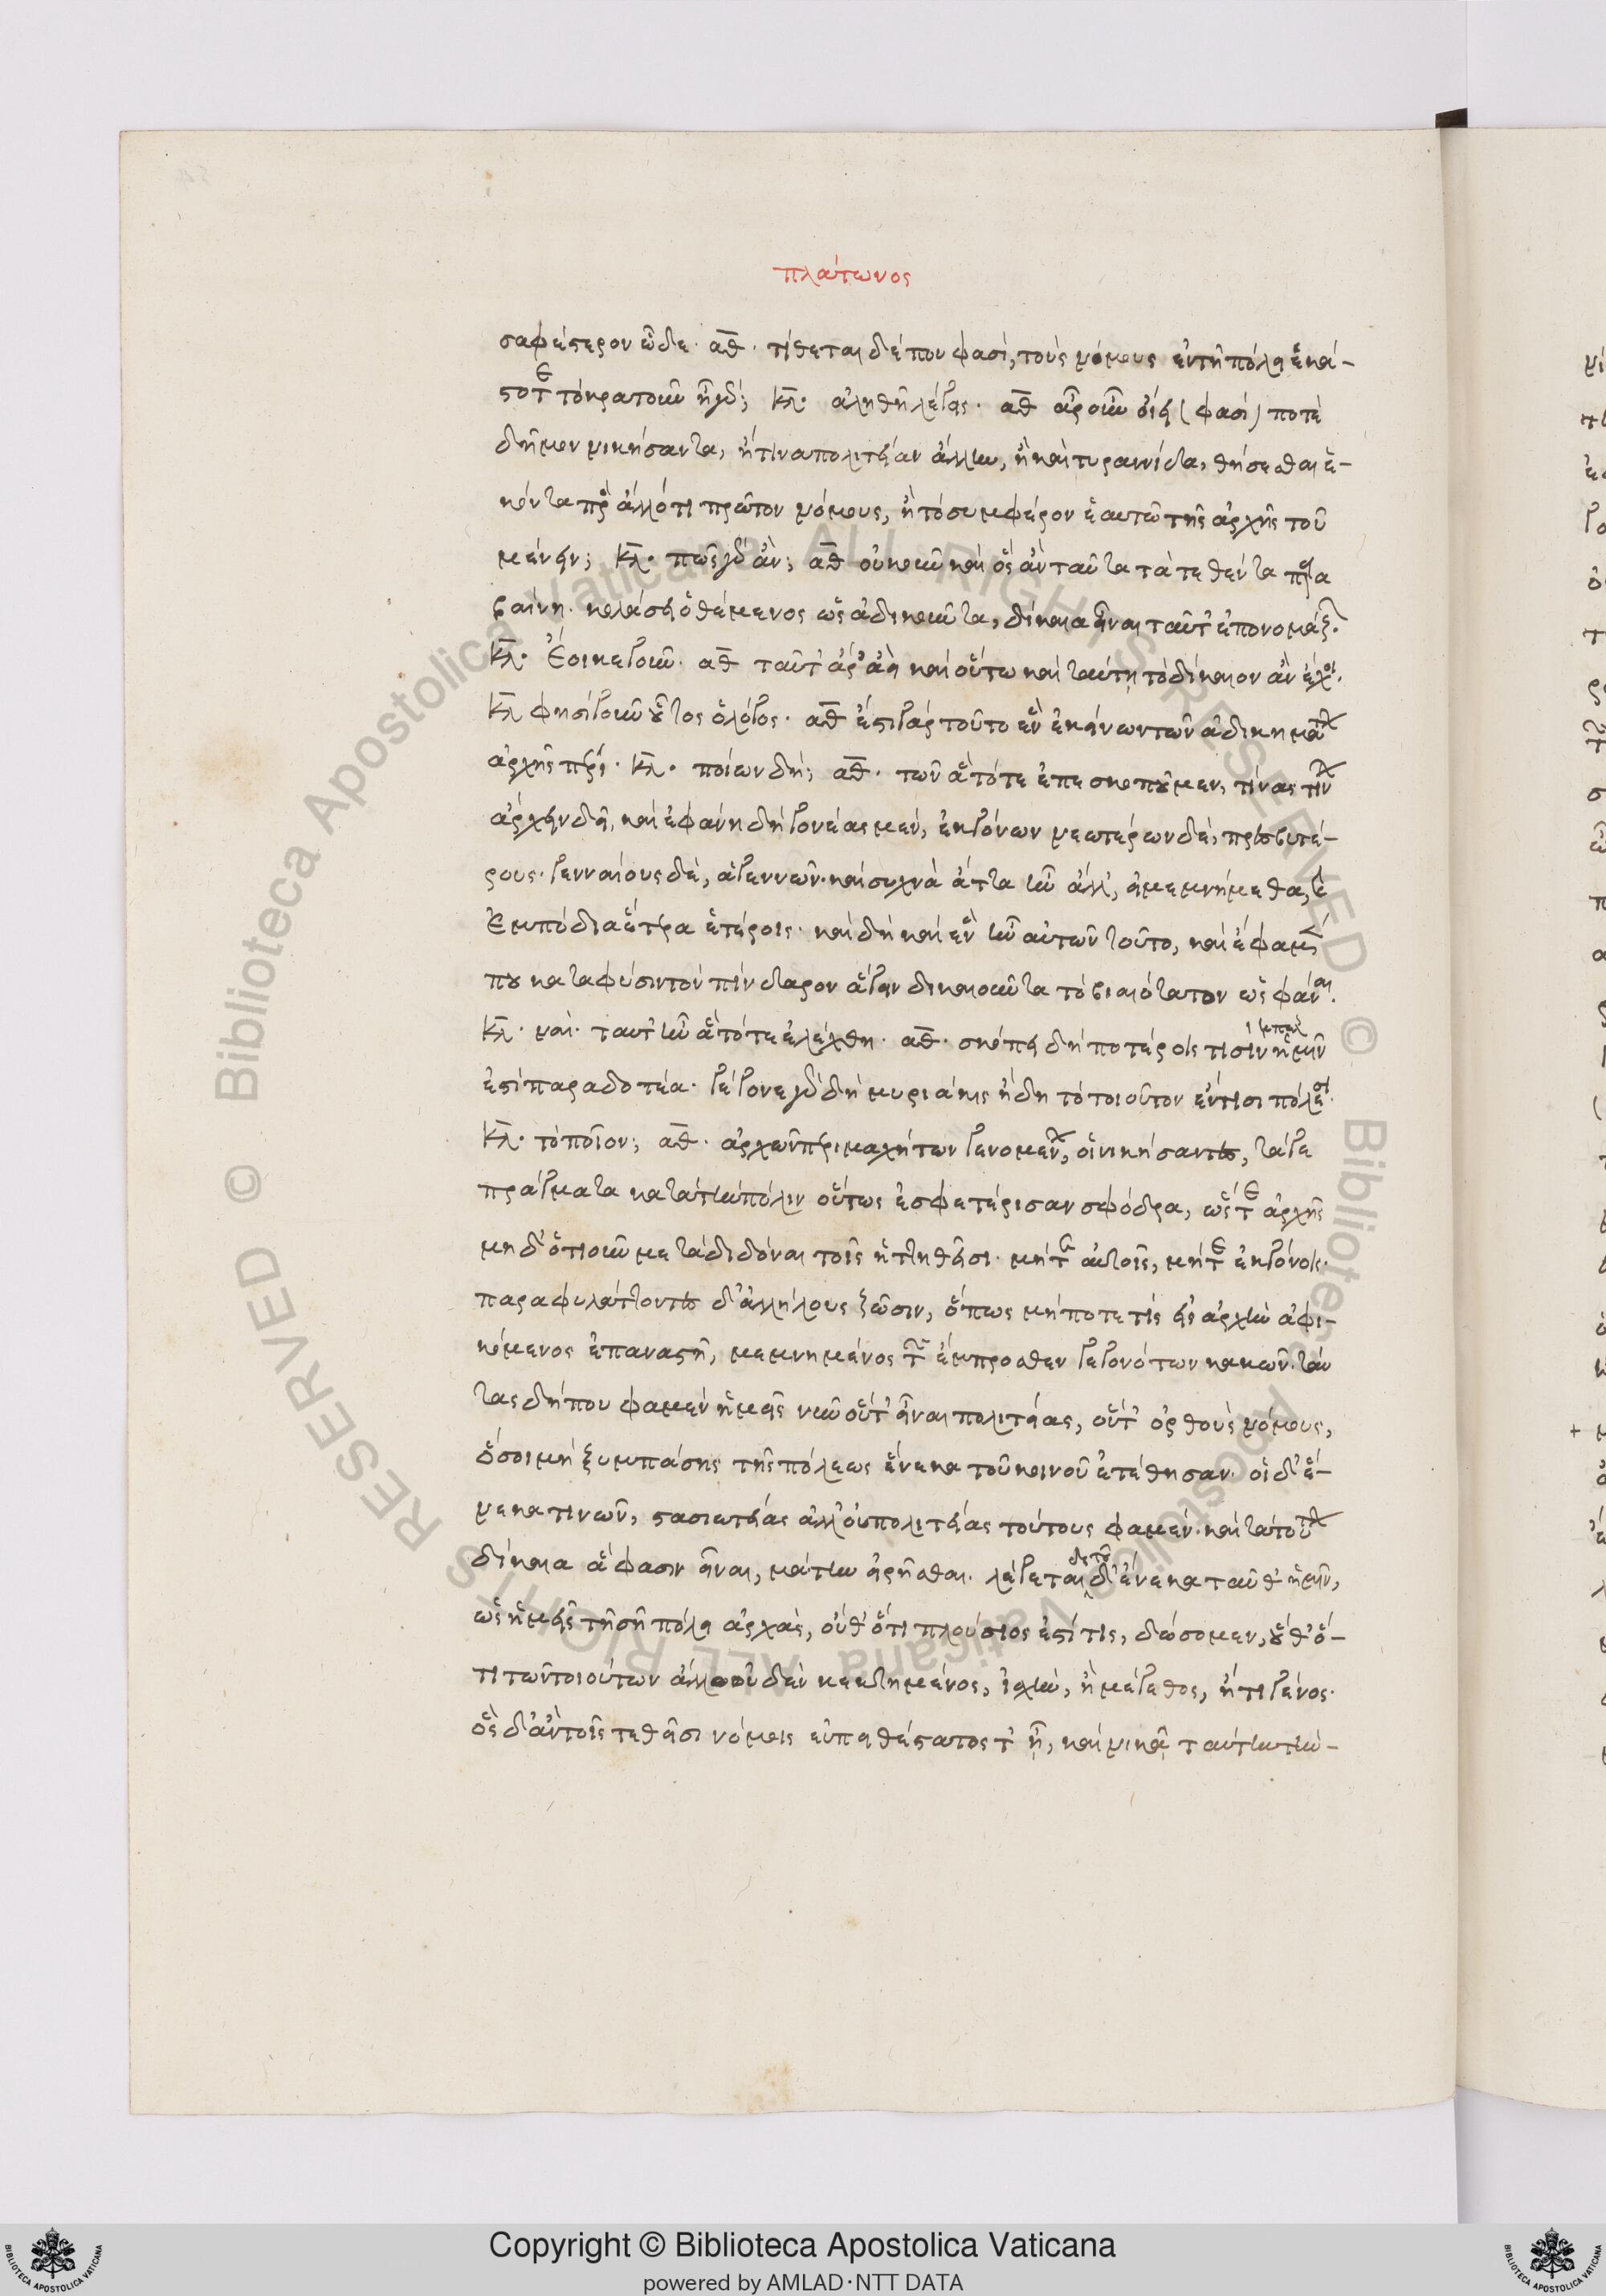 πλάτωνος
σαφέστερον ὧδε· αθ· τίθεται δέ που φασὶ, τοὺς νόμους ἐν τῇ πόλει ἑκά-
στοτε τὸ κρατοῦν ἦ γάρ; κλ· ἀληθῆ λέγεις· αθ ἆρ οὖν οἴει (φασὶ) ποτὲ
δῆμον νικήσαντα, ἤ τινα πολιτείαν ἄλλην, ἢ καὶ τυραννίδα, θήσεσθαι ἑ-
κόντα πρὸς ἄλλό τι πρῶτον νόμους, ἢ τὸ συμφέρον ἑαυτῷ τῆς ἀρχῆς τοῦ
μένειν; κλ· πῶς γὰρ ἄν; αθ οὐκοῦν καὶ ὃς ἂν ταῦτα τὰ τεθέντα παρα
βαίνῃ· κολάσει ὁ θέμενος ὡς ἀδικοῦντα, δίκαια εἶναι ταῦτ ἐπονομάζων·
κλ· ἔοικε γοῦν· αθ ταῦτ ἄρ ἀεὶ καὶ οὕτω καὶ ταύτῃ τὸ δίκαιον ἂν ἔχοι·
κλ φησὶ γοῦν οὗτος ὁ λόγος· αθ ἔστι γὰρ τοῦτο ἓν ἐκείνων τῶν ἀδικημάτων
ἀρχῆς πέρι· κλ· ποίων δή; αθ· τῶν ἃ τότε ἐπεσκοποῦμεν, τίνας τίνων
ἄρχειν δεῖ, καὶ ἐφάνη δὴ γονέας μὲν, ἐκγόνων νεωτέρων δὲ, πρεσβυτέ-
ρους· γενναίους δὲ, ἀγεννῶν· καὶ συχνὰ ἄττα ἦν ἄλλ, εἰ μεμνήμεθα, καὶ
ἐμπόδια ἕτερα ἑτέροις· καὶ δὴ καὶ ἓν ἦν αὐτῶν τοῦτο, καὶ ἔφαμέν
που κατὰ φύσιν τὸν πίνδαρον ἄγειν δικαιοῦντα τὸ βιαιότατον ὡς φάναι·
κλ· ναὶ· ταῦτ ἦν ἃ τότε ἐλέχθη· αθ· σκόπει δὴ ποτέροις τισὶν ἡμῖν
ἐστὶ παραδοτέα· γέγονε γὰρ δὴ μυριάκις ἤδη τὸ τοιοῦτον ἔν τισι πόλεσι·
κλ· τὸ ποῖον; αθ· ἀρχῶν περιμαχήτων γενομένων, οἱ νικήσαντες, τά γε
πράγματα κατὰ τὴν πόλιν οὕτως ἐσφετέρισαν σφόδρα, ὥστε ἀρχῆς
μηδ ὁτιοῦν μεταδιδόναι τοῖς ἡττηθεῖσι· μήτε αὐτοῖς, μήτε ἐκγόνοις·
παραφυλάττοντες δ ἀλλήλους ζῶσιν, ὅπως μή ποτέ τις εἰς ἀρχὴν ἀφι-
κόμενος ἐπαναστῇ, μεμνημένος τῶν ἔμπροσθεν γεγονότων κακῶν· ταύ
τας δήπου φαμὲν ἡμεῖς νῦν οὔτ εἶναι πολιτείας, οὔτ ὀρθοὺς νόμους,
ὅσοι μὴ ξυμπάσης τῆς πόλεως ἕνεκα τοῦ κοινοῦ ἐτέθησαν· οἳ δ ἕ-
νεκα τινῶν, στασιωτείας ἀλλ οὐ πολιτείας τούτους φαμὲν· καὶ τὰ τούτων
δίκαια ἅ φασιν εἶναι, μάτην εἰρῆσθαι· λέγεται δὲ τοῦδ ἕνεκα ταῦθ ἡμῖν,
ὡς ἡμεῖς τῇ σῇ πόλει ἀρχὰς, οὔθ ὅτι πλούσιος ἐστί τις, δώσομεν, οὔθ ὅ-
τι τῶν τοιούτων ἄλλο οὐδὲν κεκτημένος, ἰσχὺν, ἢ μέγεθος, ἤ τι γένος·
ὃς δ ἂν τοῖς τεθεῖσι νόμοις εὐπειθέστατός τ ᾖ, καὶ νικᾷ ταύτην τὴν-